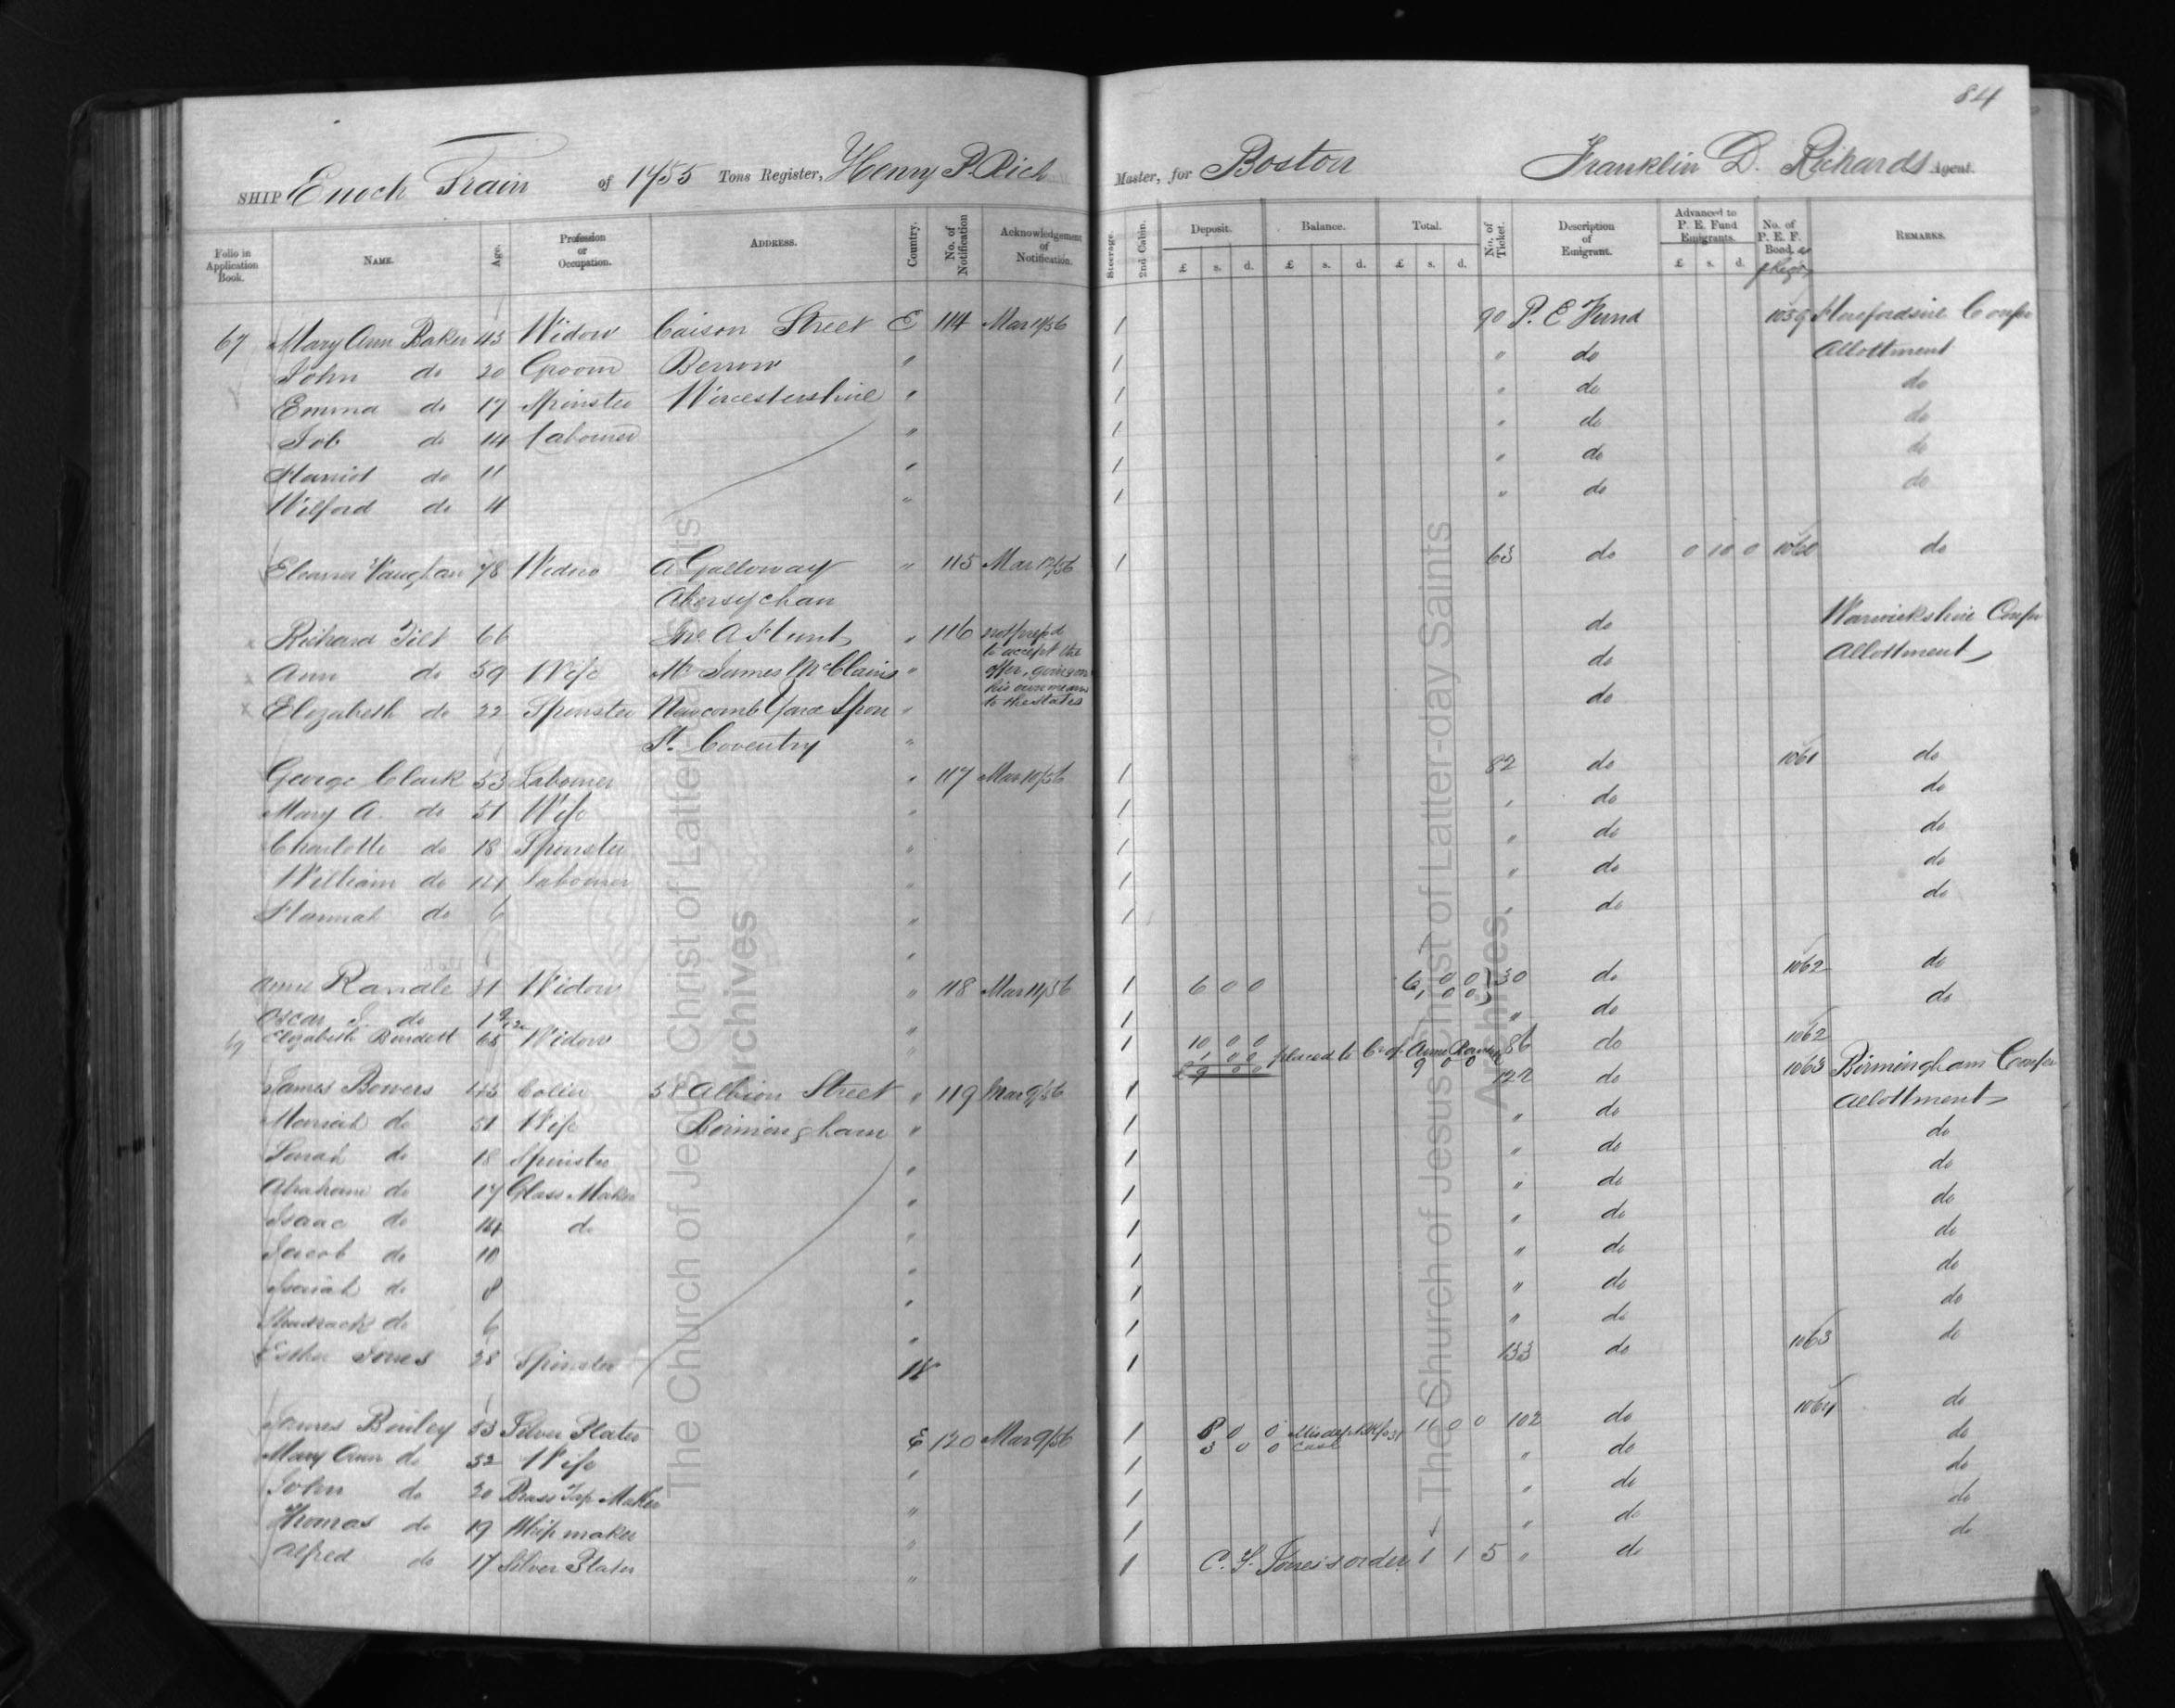 84
SHIP Enoch Train of 1455 Tons Register, Henry P. Rich Master, for Boston Franklin D. Richards Agent.
Folio in Application Book. NAME. Age. Profession or Occupation. ADDRESS. Country. No. of Notification Acknowledgement of Notification. Steerage. 2nd Cabin. Deposit. Balance. Total. No. of Ticket. Description of Emigrant. Advanced to P. E. Fund Emigrants. No. of P. E. F. Bond. REMARKS.
£ s. d. £ s. d. £ s. d. £ s. d.
67 Mary Ann Baker 43 Widow Caison Street E 114 Mar 11/56 1 90 P. E Fund 1059 Herefordsire Confer
John do 20 Groom Berrow " 1 " do Allottment
Emma do 17 Spinster Worcestershire " 1 " do do
Job do 14 Labourer " 1 " do do
Harriet do 11 " 1 " do do
Wilford do 4 " 1 " do do
Eleanor Vaughan 78 Widow A Galloway " 115 Mar 12/56 1 63 do 0 10 0 1060 do
Abersychan
Richard Tilt 66 A Hunt " 116 not prepd do Warwickshire Confer
to accept the
Ann do 59 Wife Mr James McClains " offer, going on do Allottment
his own means
Elizabeth do 22 Spinster Newcomb Yard Spon " to the States do
St. Coventry "
George Clark 53 Labourer " 117 Mar 10/56 1 82 do 1061 do
Mary A. do 51 Wife " 1 " do do
Charlotte do 18 Spinster " 1 " do do
William do 14 Labourer " 1 " do do
Hannah do 6 " 1 " do do
"
Anne Randle 31 Widow " 118 Mar 11/56 1 6 0 0 6 0 0 30 do 1062 do
1 0 0
Oscar J. do 1 " 1 " do do
69 Elizabeth Burdett 65 Widow " 1 10 0 0 86 do 1062
1 0 0 placed to Cr of Anne Randle
£9 0 0 9 0 0
James Bowers 45 Colier 58 Albion Street " 119 Mar 9/56 1 122 do 1063 Birmingham Confer
Mariah do 51 Wife Birmingham " 1 " do Allottment
Sarah do 18 Spinster " 1 " do do
Abraham do 17 Glass Maker " 1 " do do
Isaac do 14 do " 1 " do do
Jacob do 10 " 1 " do do
Isaiah do 8 " 1 " do do
Shadrach do 6 " 1 " do do
Esther Jones 28 Spinster W 1 133 do 1063 do
James Bailey 53 Silver Plater E 120 Mar 9/56 1 8 0 0 11 0 0 102 do 1064 do
3 0 0 Cash
Mary Ann do 52 Wife " 1 " do do
John do 20 Brass Tap Maker " 1 " do do
Thomas do 19 Whip maker " 1 " do do
Alfred do 17 Silver Plater " 1 C. F. Jones's order 1 1 5 " do do
The Church of Jesus Christ of Latter-day Saints
Archives
The Church of Jesus Christ of Latter-day Saints
Archives